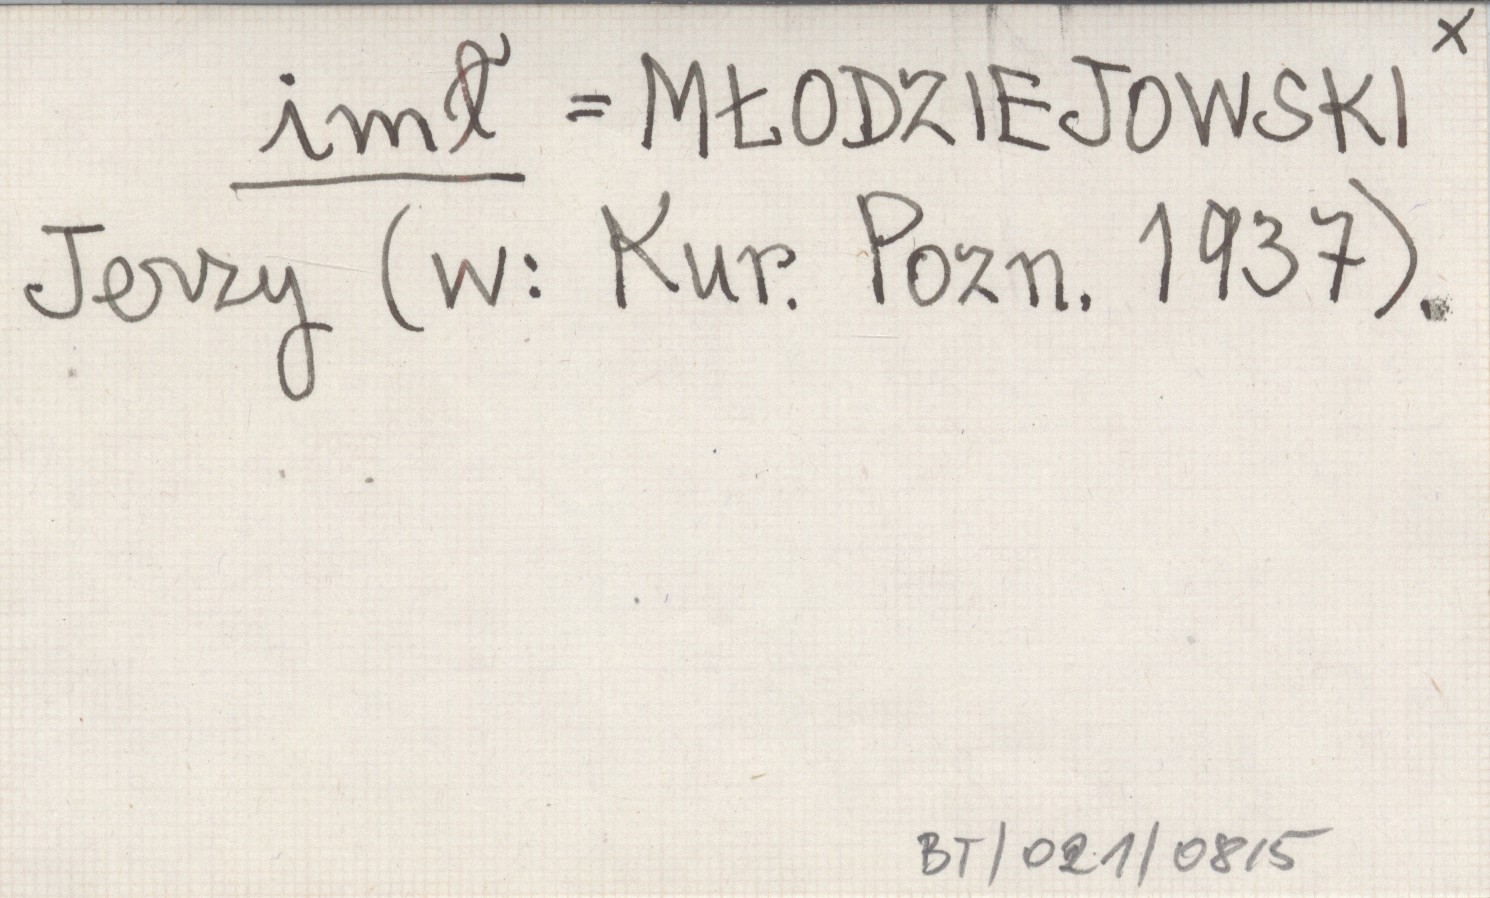 imł = MŁODZIEJOWSKI x
Jerzy (w: Kur. Pozn. 1937).
BT/021/0815